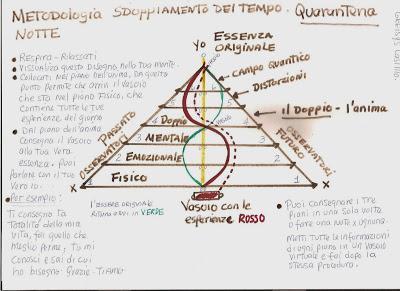 METODOLOGIA SDOPPIAMENTO DEL TEMPO. QUARANTENA
NOTTE
ESSENZA
ORIGINALE
Yo
• Respira - Rilassati
• Visualizza questo disegno nella tua mente.
• Collocati nel piano dell'anima, da questo
punto permette che arrivi il vassoio
che sta nel piano fisico, che
contiene tutte le tue
esperienze del giorno
• Dal piano dell'anima
consegna il vassoio
alla tua vera
essenza, puoi
parlare con il tuo
vero io.
• Per esempio:
Ti consegno la
totalità della mia
vita, fai quello che
meglio pensi, tu mi
conosci e sai di cui
ho bisogno. Grazie. Ti amo
CAMPO QUANTICO
DISTORZIONI
Il Doppio - l'anima
PASSATO
OSSERVATORE
OSSERVATORI
FUTURO
4 Doppio 4
3 MENTALE 3
2 EMOZIONALE 2
1 FISICO 1
X
X
L'essere originale
ritorna a noi in VERDE
Vassoio con le
esperienze ROSSO
• Puoi consegnare i tre
piani in una sola volta
o fare una notte x ognuna.
Metti tutte le informazioni
di ogni piano in un vassoio
virtuale e fai dopo la
stessa procedura.